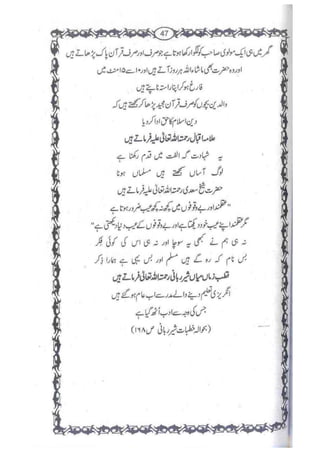 47
گھر میں ہی ایک مولوی صاحب کو لگوا رکھا ہوتا ہے جو صرف اور صرف قرآن پاک پڑھاتے ہیں
اور وہ حضرت بھی ماشاءاللہ ہر روز آتے ہیں اور ۱۰ سے ۱۵ منٹ میں
فارغ ہو کر اپنا راستہ ناپتے ہیں
والدین بچوں کو صرف قرآن مجید پڑھا کر سمجھتے ہیں کہ
دین اسلام کا حق ادا کر دیا
علامہ اقبال رحمۃ اللہ تعالیٰ علیہ فرماتے ہیں
یہ شہادت گہ الفت میں قدم رکھنا ہے
لوگ آساں سمجھتے ہیں مسلماں ہونا
حضرت شیخ سعدی رحمۃ اللہ تعالیٰ علیہ فرماتے ہیں
"عقلمند اور بے وقوفوں میں کچھ نہ کچھ عیب ضرور ہوتا ہے
مگر عقلمند اپنے عیب خود دیکھتا ہے اور بے وقوفوں کے عیب دنیا دیکھتی ہے"
نہ ہی ہم نے کبھی یہ سوچا اور نہ ہی اس کی کوئی فکر
بس نام کے رہ گئے ہیں مسلم اور بس یہی ہے ہمارا ذکر
قطب زماں میاں شیر ربانی رحمۃ اللہ تعالیٰ فرماتے ہیں
انگریزی تعلیم دینے والے مدرسے اب عام ہو گئے ہیں
جس کی وجہ سے ادب اٹھ گیا ہے
(بحوالہ خطبات شیر ربانی ص ۱۶۸)